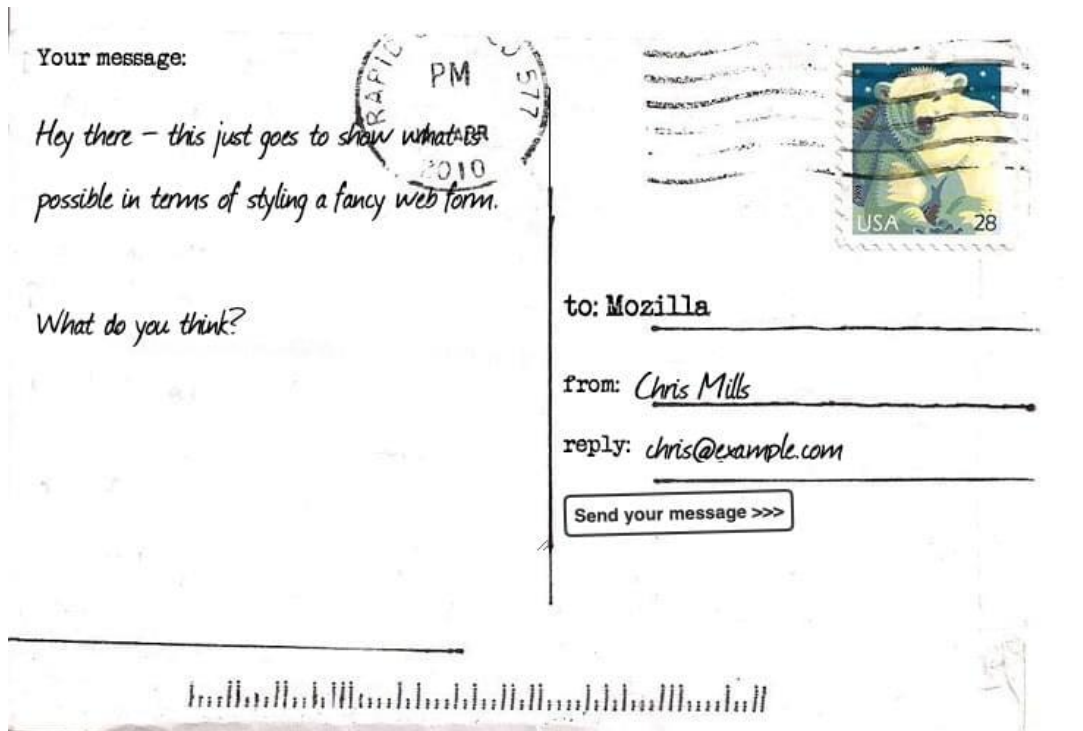 Your message:
Hey there – this just goes to show what is
possible in terms of styling a fancy web form.
What do you think?
PM
APR
2010
577
USA 28
to: Mozilla
from: Chris Mills
reply: chris@example.com
Send your message >>>